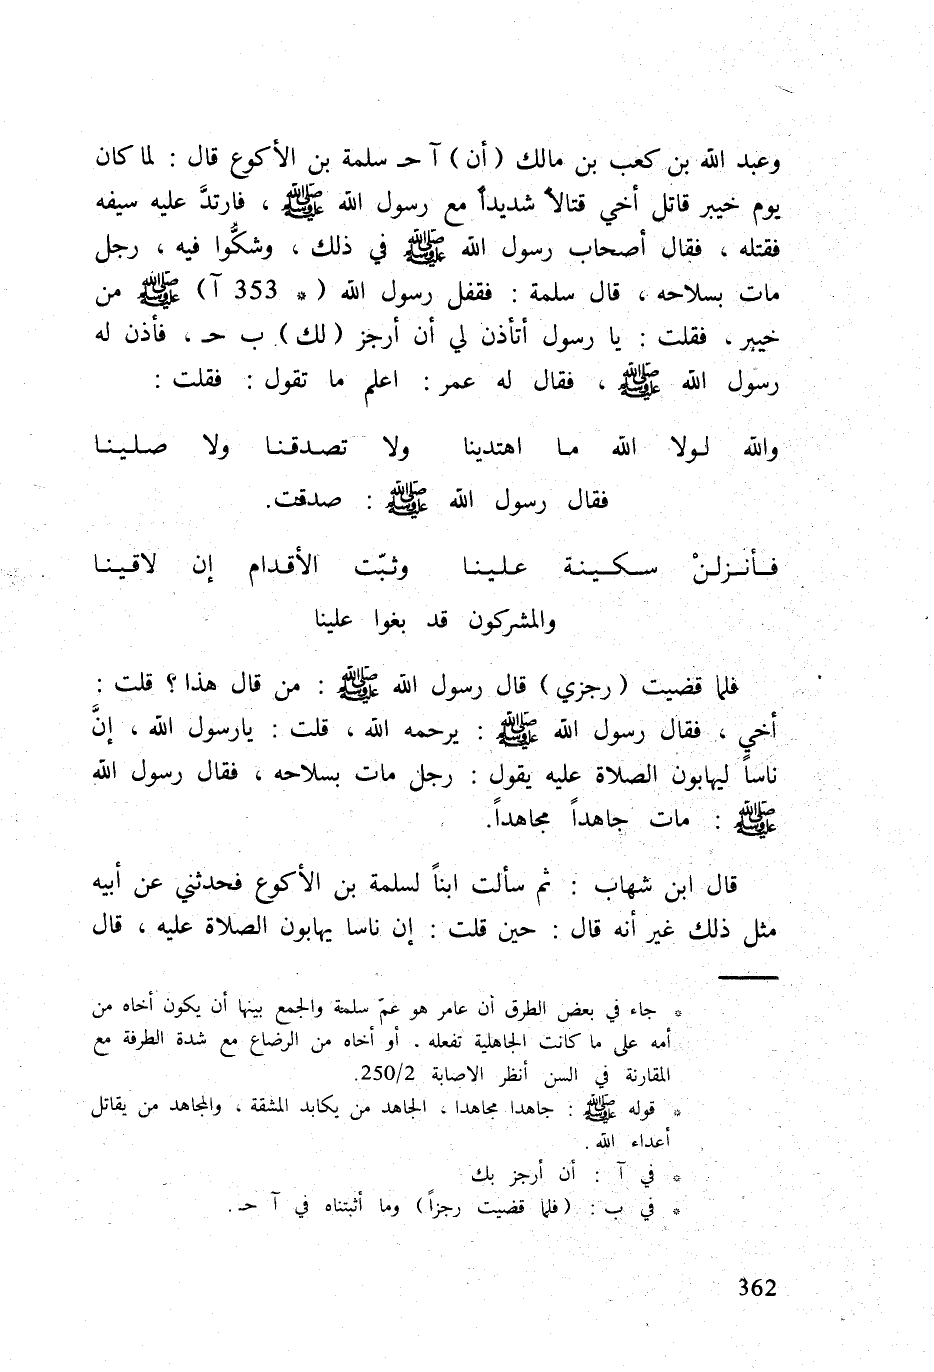 وعبد الله بن كعب بن مالك (أن) آ حـ سلمة بن الأكوع قال : لما كان
يوم خيبر قاتل أخي قتالاً شديداً مع رسول الله ﷺ ، فارتدَّ عليه سيفه
فقتله ، فقال أصحاب رسول الله ﷺ في ذلك ، وشكُّوا فيه ، رجل
مات بسلاحه ، قال سلمة : فقفل رسول الله (* 353 آ) ﷺ من
خيبر ، فقلت : يا رسول أتأذن لي أن أرجز (لك) ب حـ ، فأذن له
رسول الله ﷺ ، فقال له عمر : اعلم ما تقول : فقلت :
والله لولا الله ما اهتدينا ولا تصدقنا ولا صلينا
فقال رسول الله ﷺ : صدقت.
فأنزلنْ سكينة علينا وثبّت الأقدام إن لاقينا
والمشركون قد بغوا علينا
فلما قضيت (رجزي) قال رسول الله ﷺ : من قال هذا ؟ قلت :
أخي ، فقال رسول الله ﷺ : يرحمه الله ، قلت : يارسول الله ، إنَّ
ناساً ليهابون الصلاة عليه يقول : رجل مات بسلاحه ، فقال رسول الله
ﷺ : مات جاهداً مجاهداً.
قال ابن شهاب : ثم سألت ابناً لسلمة بن الأكوع فحدثني عن أبيه
مثل ذلك غير أنه قال : حين قلت : إن ناسا يهابون الصلاة عليه ، قال
* جاء في بعض الطرق أن عامر هو عمّ سلمة والجمع بينها أن يكون أخاه من
أمه على ما كانت الجاهلية تفعله . أو أخاه من الرضاع مع شدة الطرفة مع
المقارنة في السن أنظر الاصابة 250/2.
* قوله ﷺ : جاهدا مجاهدا ، الجاهد من يكابد المشقة ، والمجاهد من يقاتل
أعداء الله .
* في آ : أن أرجز بك
* في ب : (فلما قضيت رجزاً) وما أثبتناه في آ حـ .
362